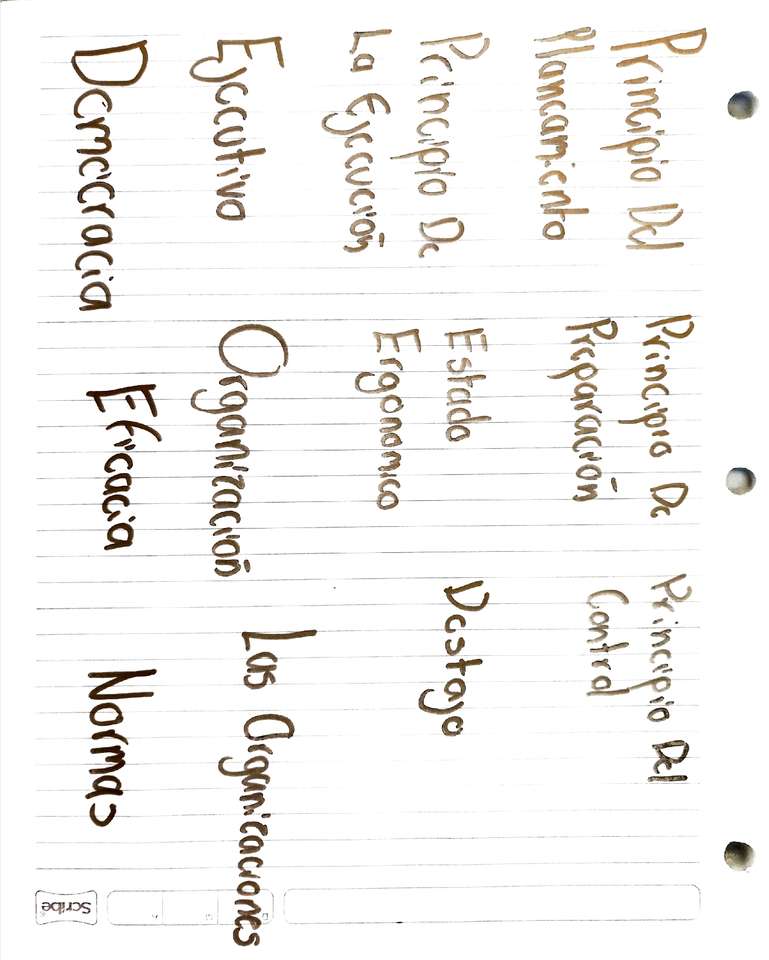 Principio Del
Planeamiento
Principio De
Preparación
Principio Del
Control
Principio De
La Ejecución
Estado
Ergonomico
Destajo
Ejecutivo
Organización
Las Organizaciones
Democracia
Eficacia
Normas
Scribe